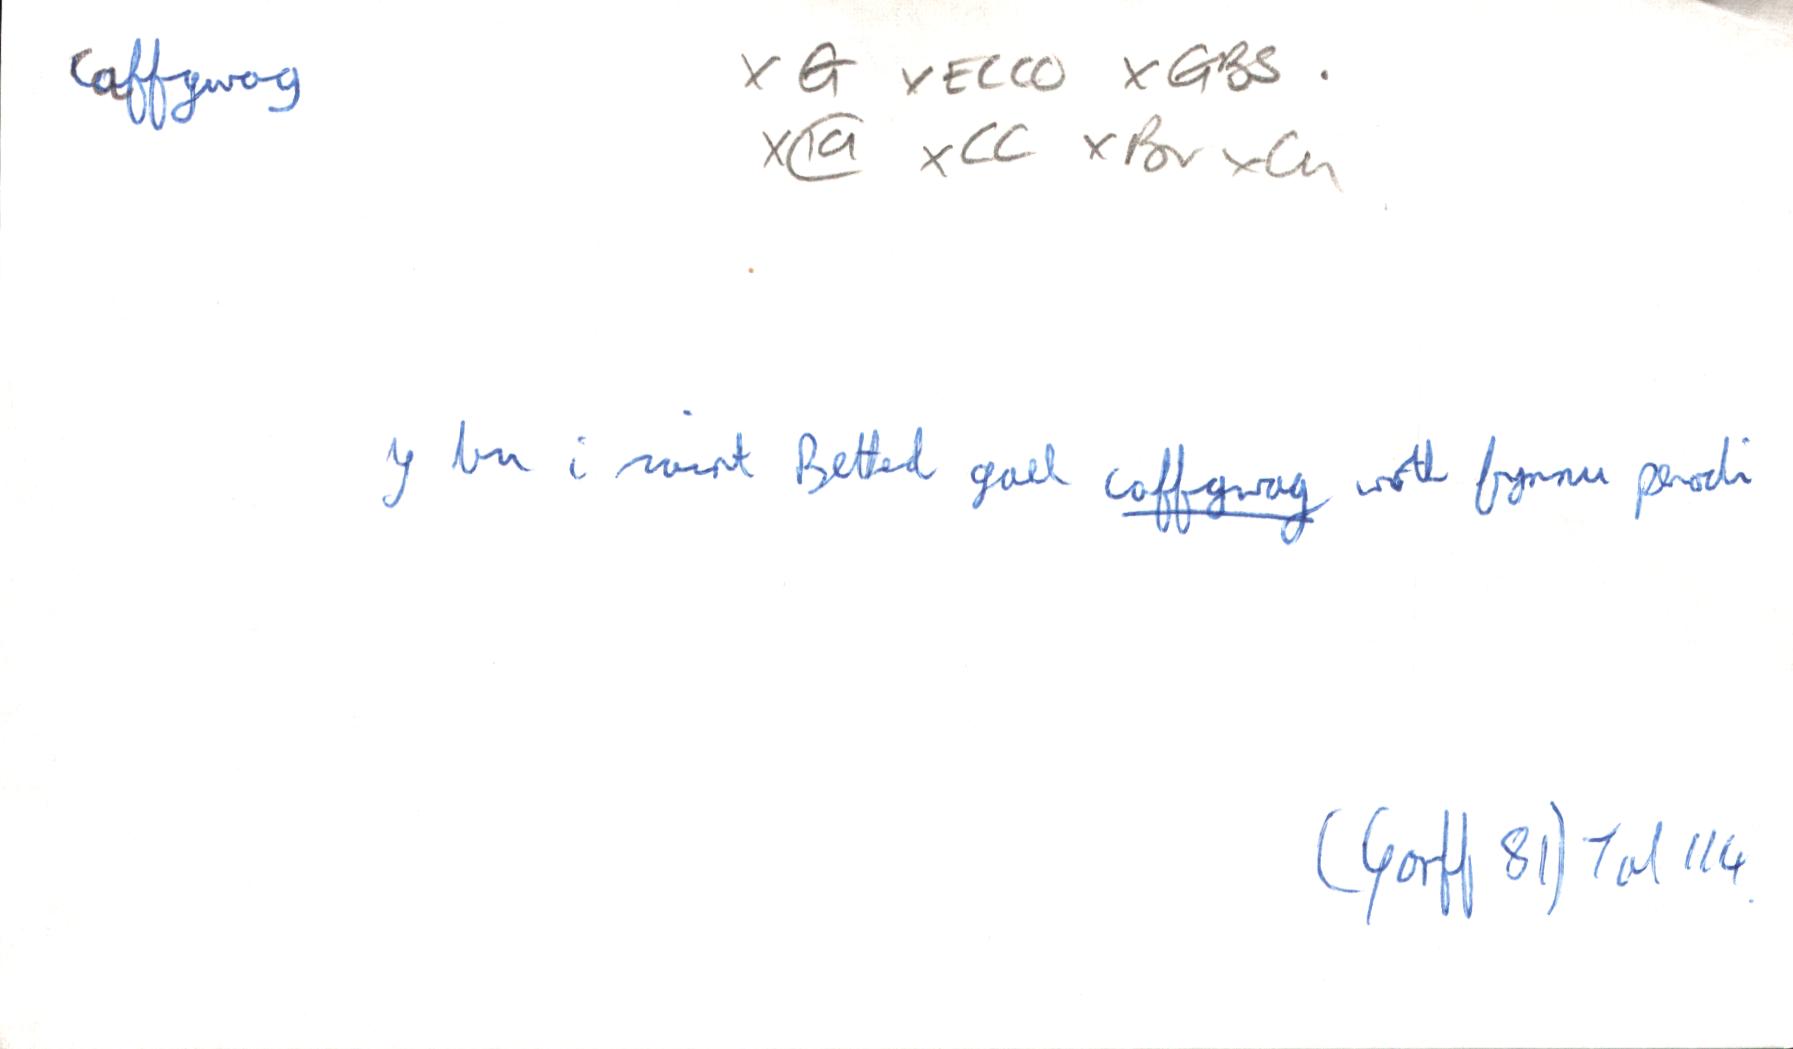 caffgwag
x G x ECCO x GBS .
x CC x Br x Cn
y bu i saint Bethel gael caffgwag wrth fynnu penodi
(Gorff 81) Tal 114.